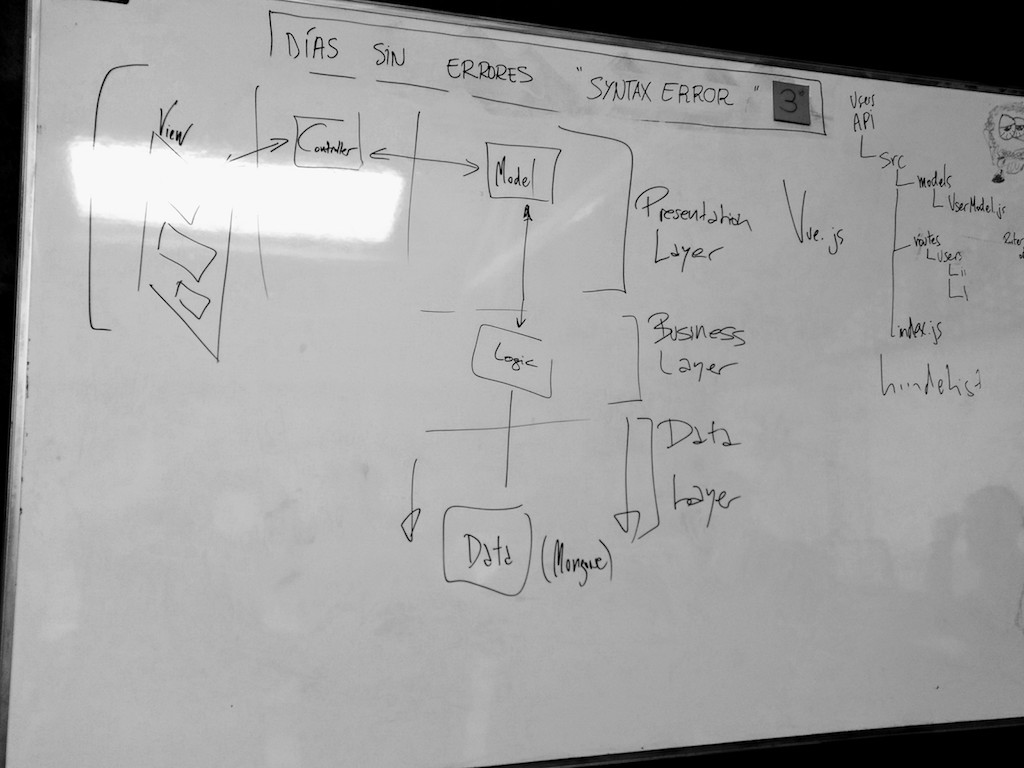 DÍAS SIN ERRORES "SYNTAX ERROR" 3
View
Controller
Model
Presentation
Layer
Logic
Business
Layer
Data
Layer
Data
Vue.js
Users
API
src
models
UserModel.js
routes
users
index.js